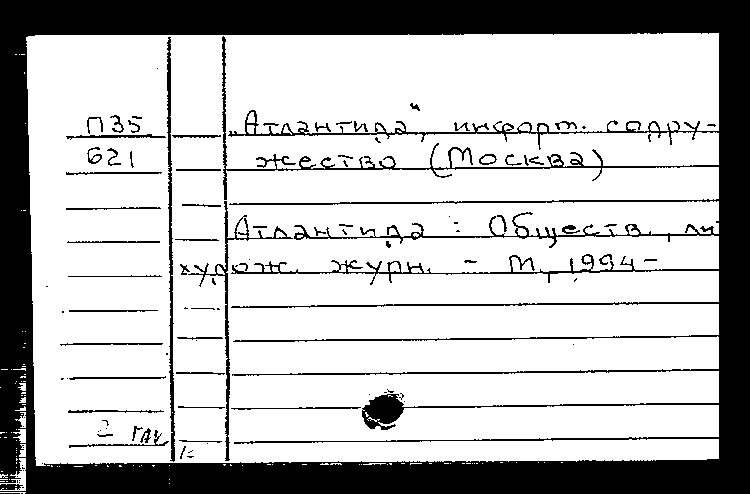 П35 „Атлантида", информ. содру-
621 жество (Москва)
Атлантида : Обществ., ли
худож. журн. - М., 1994-
2